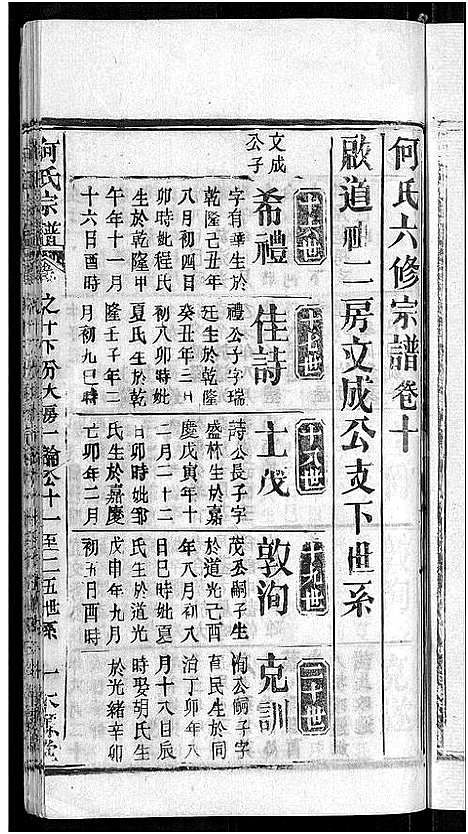 何氏六修宗譜卷十
啟道祖二房文成公支下世系
文成公子
十六世
希禮
字有華生於
乾隆己丑年
八月初四日
卯時妣程氏
生於乾隆甲
午年十一月
十六日酉時
十七世
佳詩
禮公子字瑞
廷生於乾隆
癸丑年三月
初八卯時妣
夏氏生於乾
隆壬子年三
月初九巳時
十八世
士茂
詩公長子字
盛林生於嘉
慶戊寅年十
二月二十二
日卯時妣鄒
氏生於嘉慶
己卯年二月
十九世
敦洵
茂公嗣子生
於道光己酉
年八月初八
日巳時妣夏
氏生於道光
戊申年九月
初五日酉時
二十世
克訓
洵公嗣子字
直民生於同
治丁卯年八
月十八日辰
時娶胡氏生
於光緒辛卯
何氏宗譜
卷之十下份大房一瀚公十一至二五世系
一